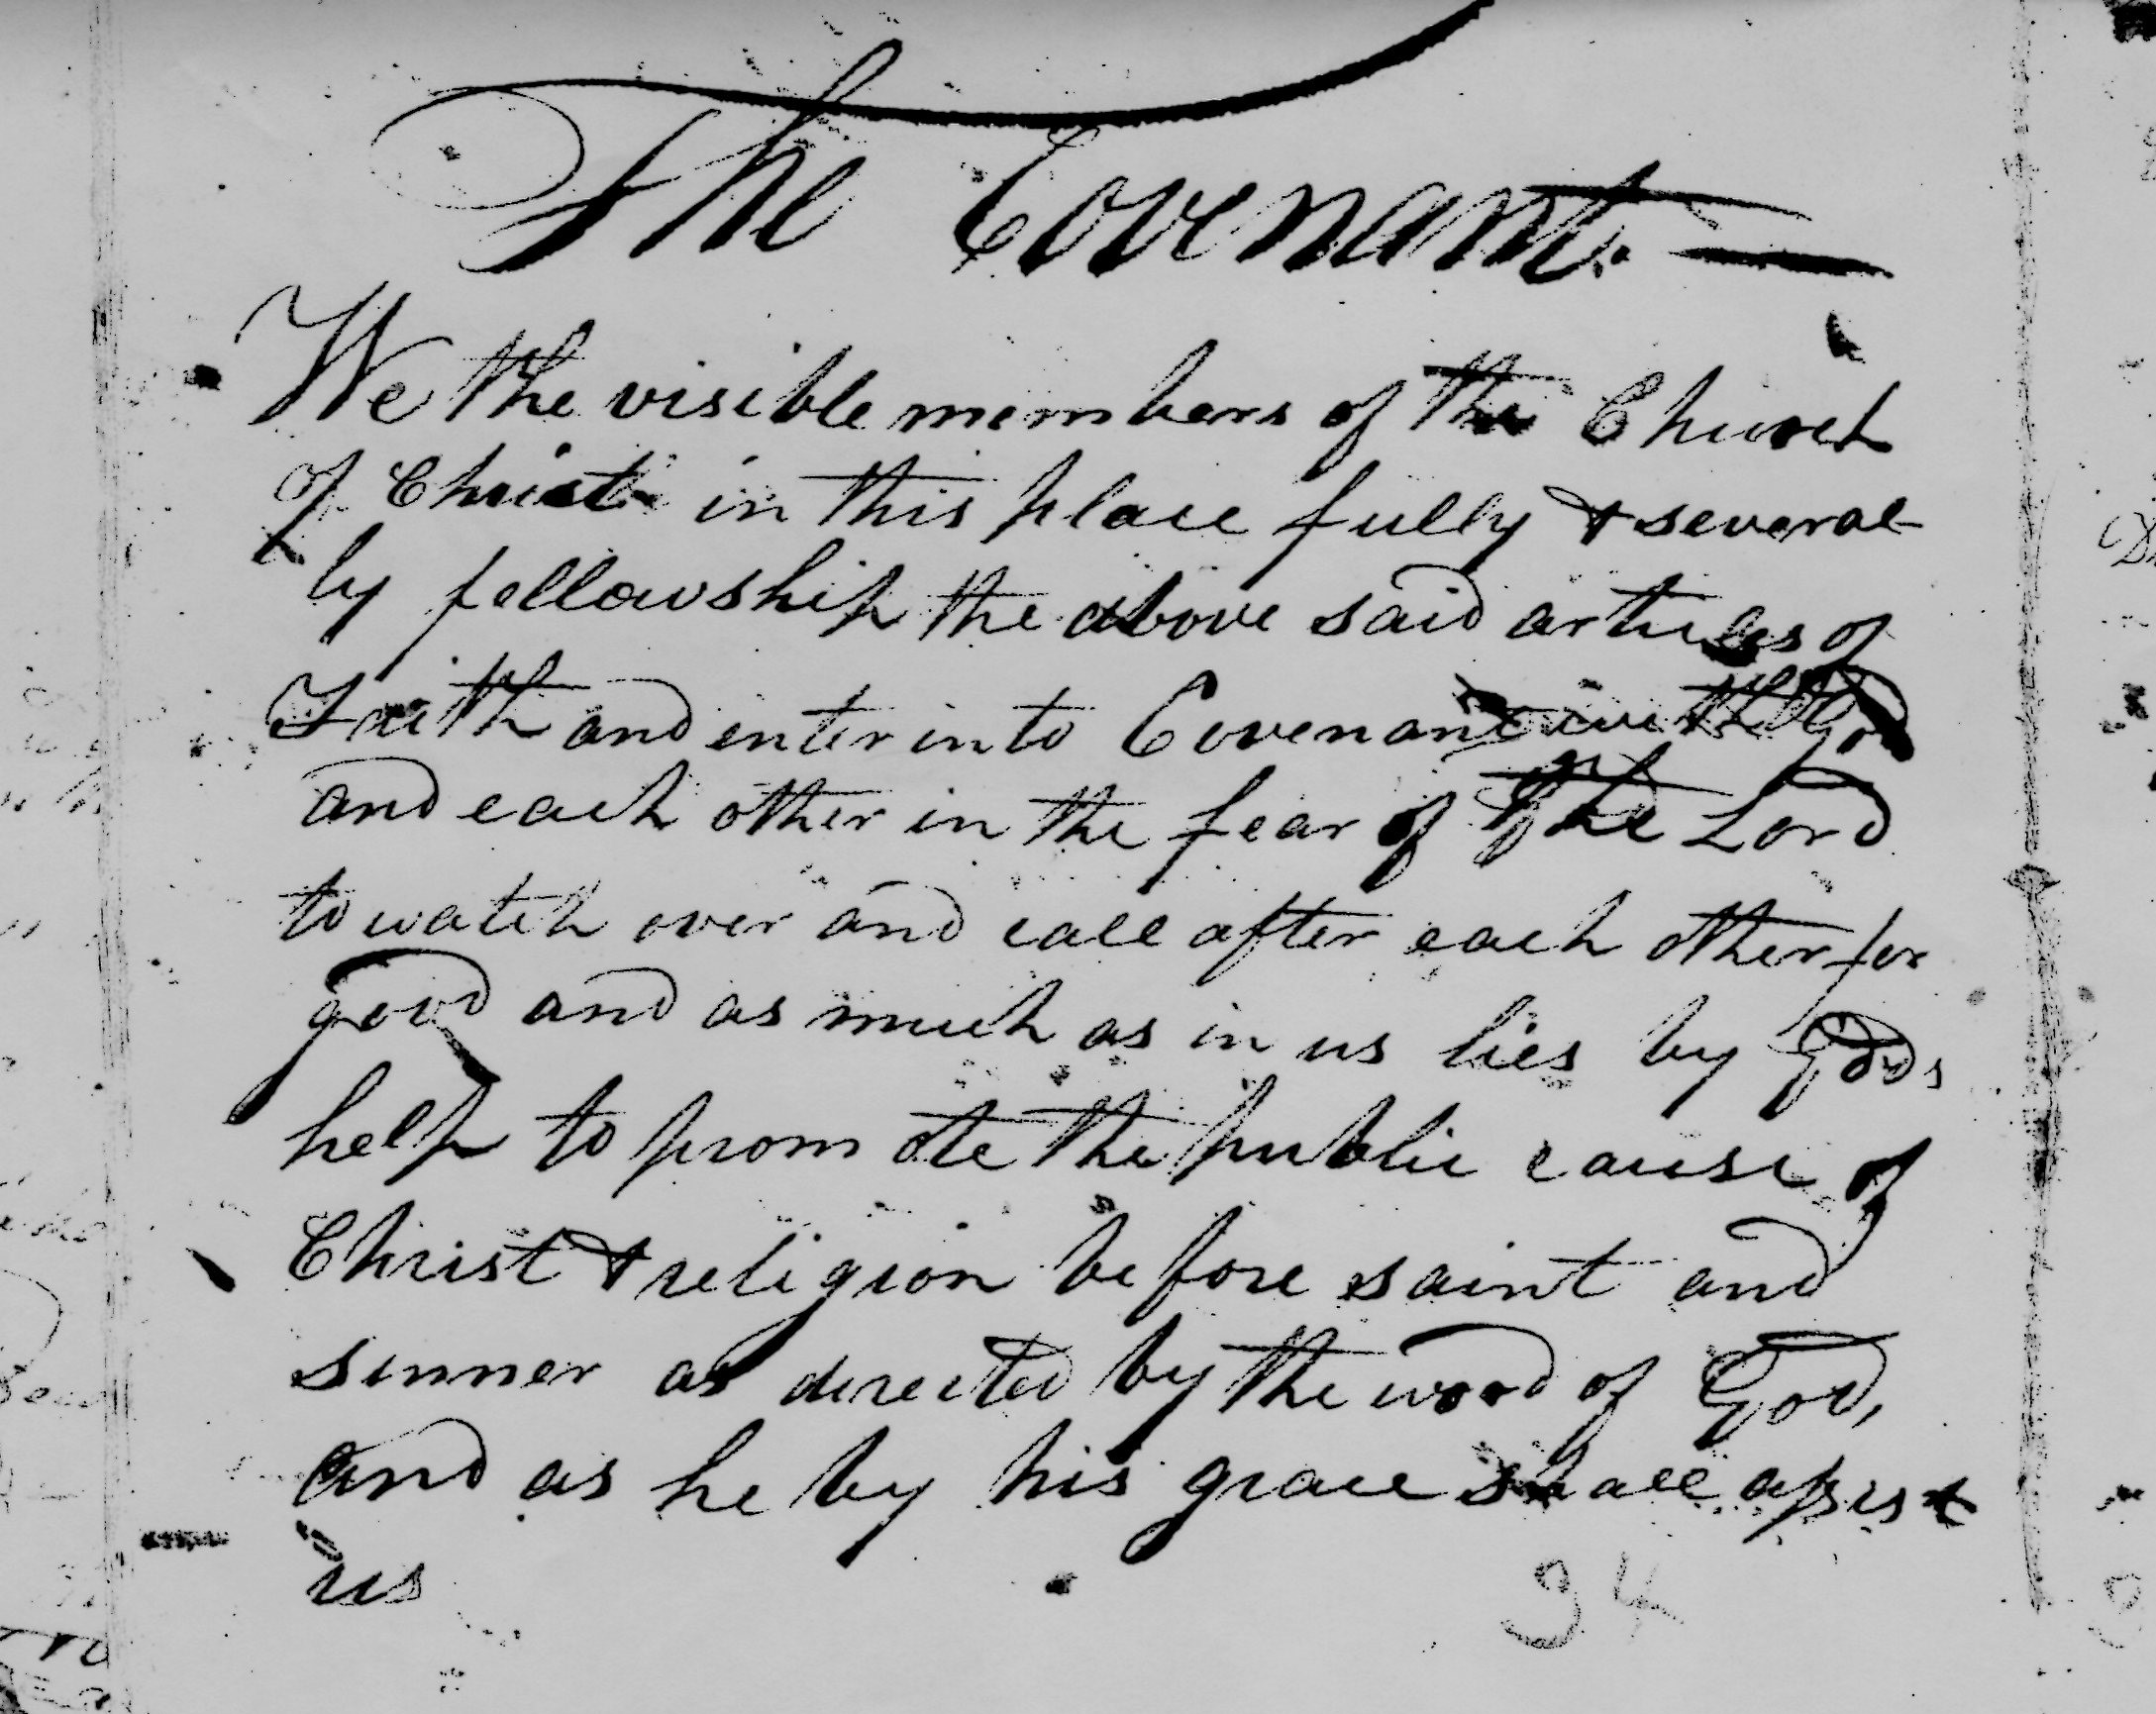 The Covenant. —
We the visible members of the Church
of Christ in this place fully & several-
ly fellowship the above said articles of
Faith and enter into Covenant with God
and each other in the fear of the Lord
to watch over and call after each other for
good and as much as in us lies by Gods
help to promote the public cause of
Christ & religion before saint and
sinner as directed by the word of God,
and as he by his grace shall assist
us
94